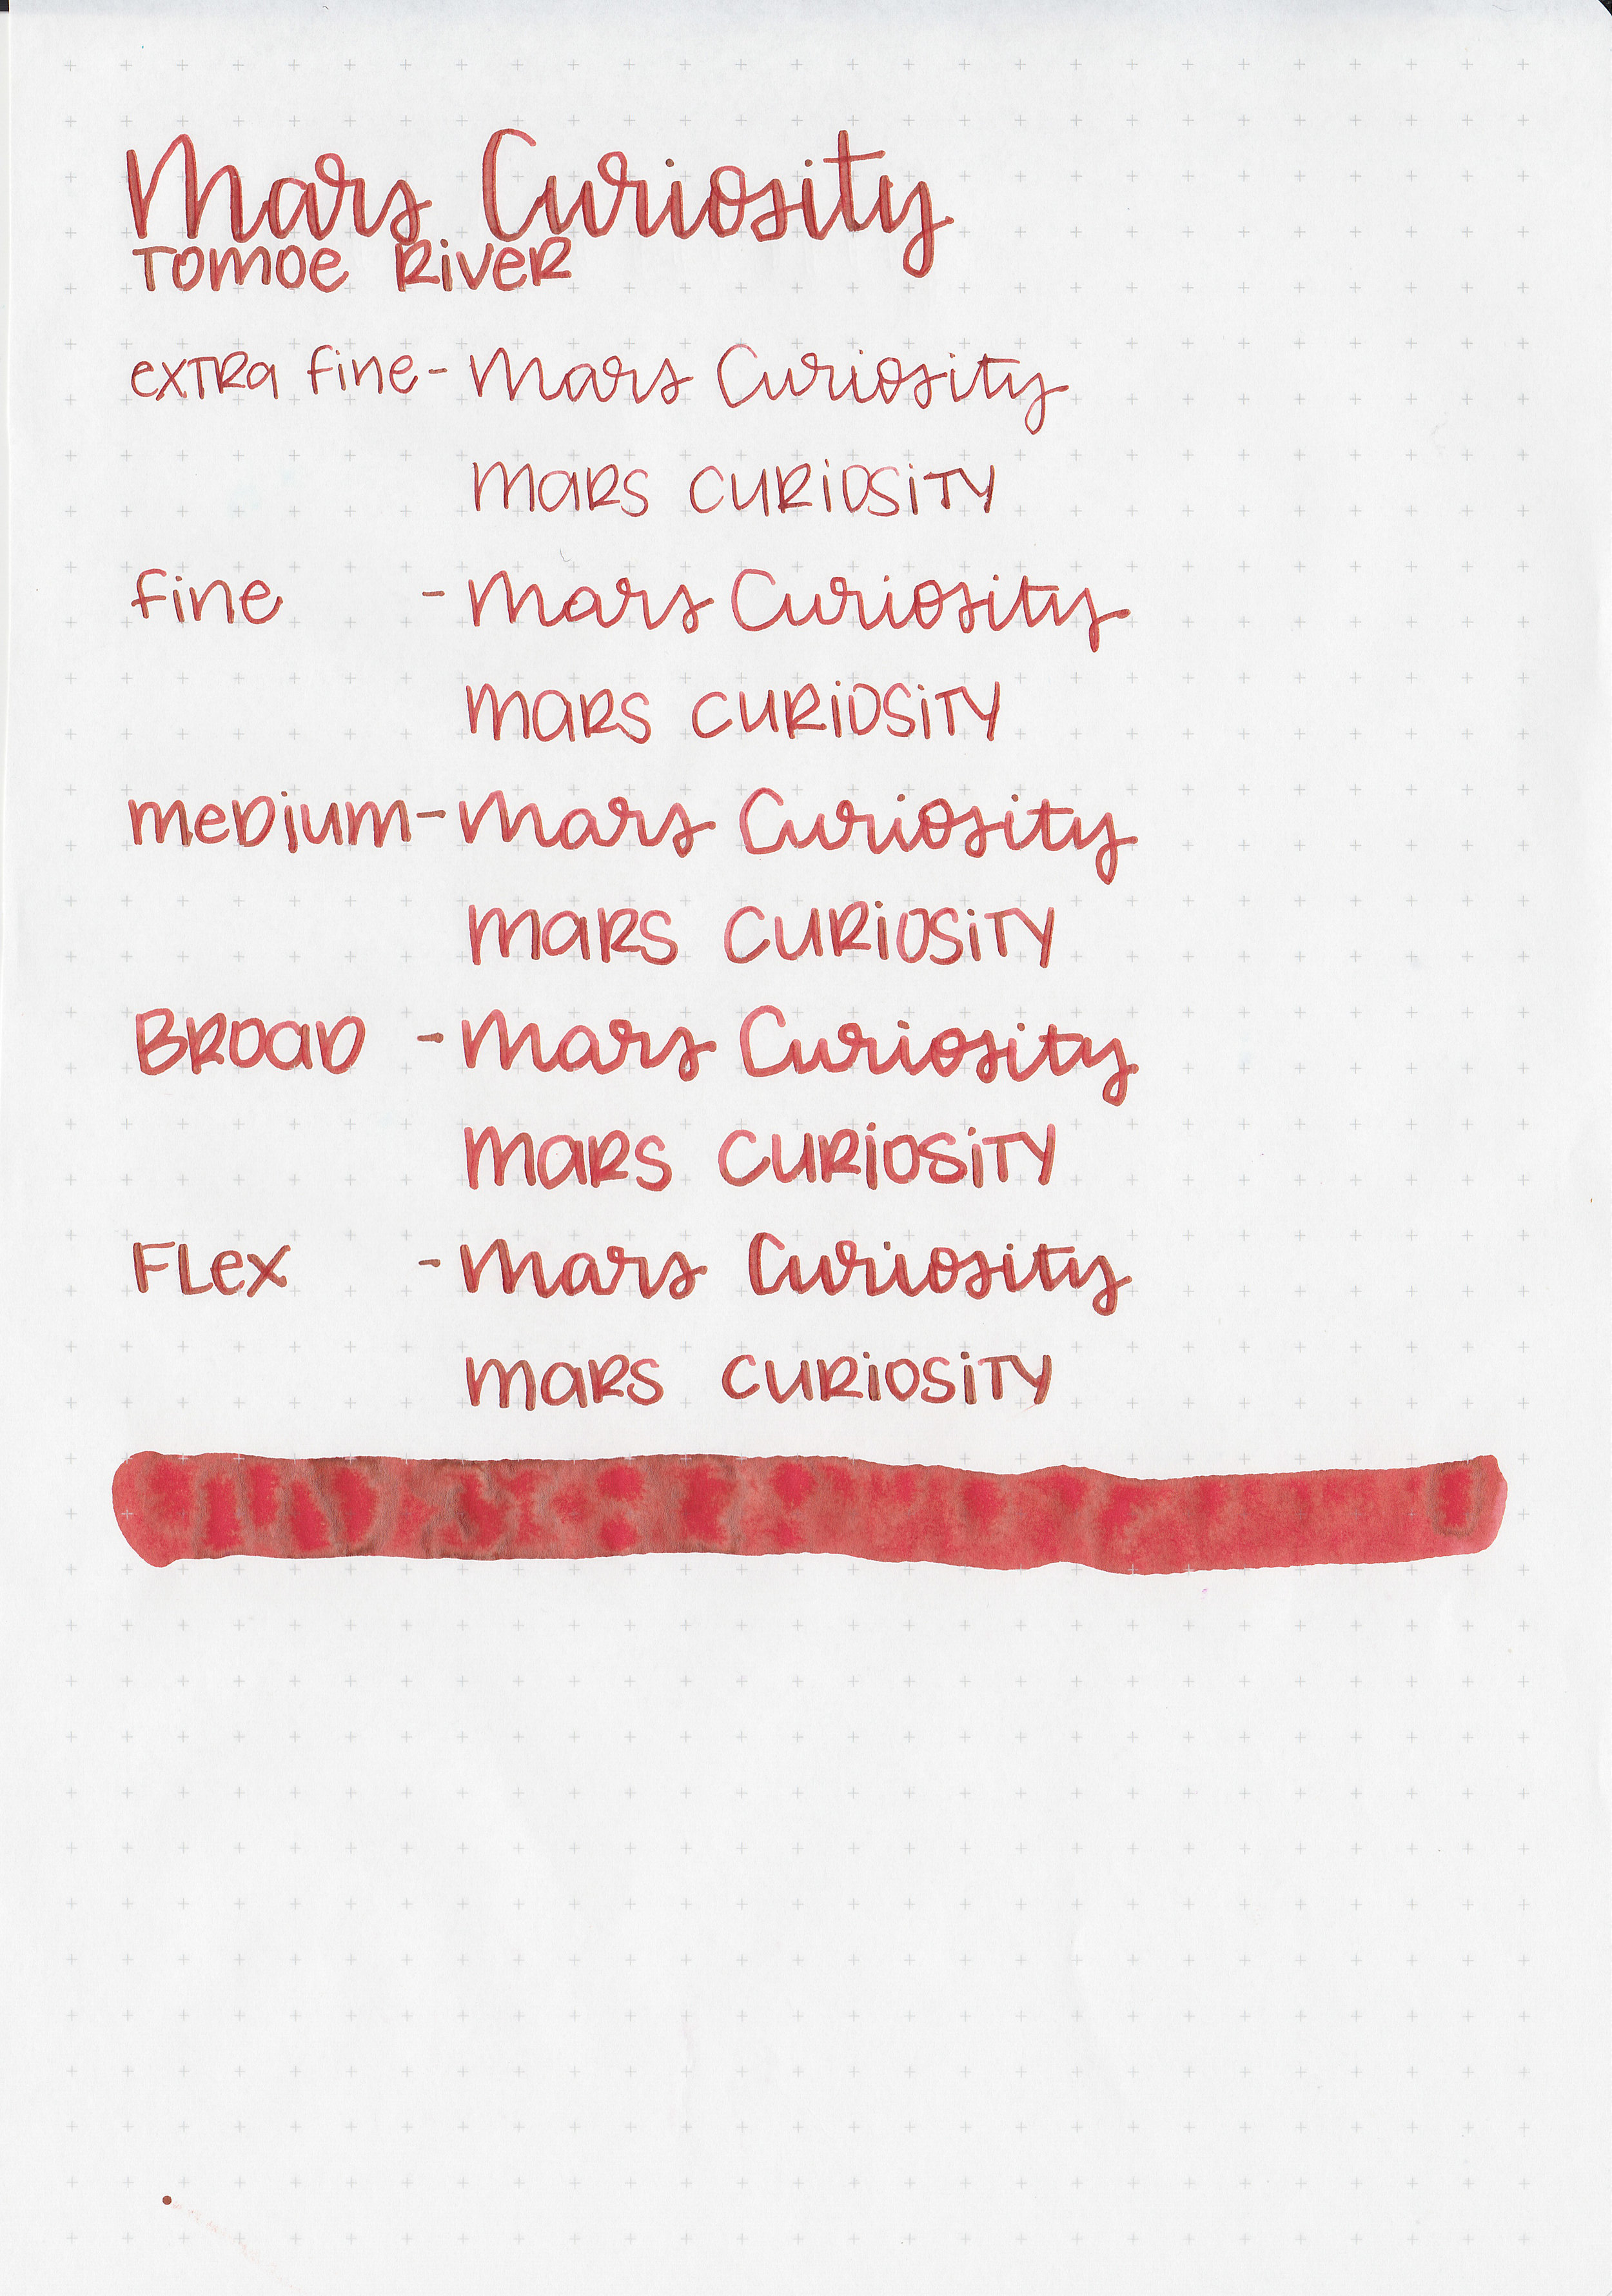 Mars Curiosity
Tomoe River
extra fine - Mars Curiosity
Mars Curiosity
fine - Mars Curiosity
Mars Curiosity
medium - Mars Curiosity
Mars Curiosity
Broad - Mars Curiosity
Mars Curiosity
Flex - Mars Curiosity
Mars Curiosity